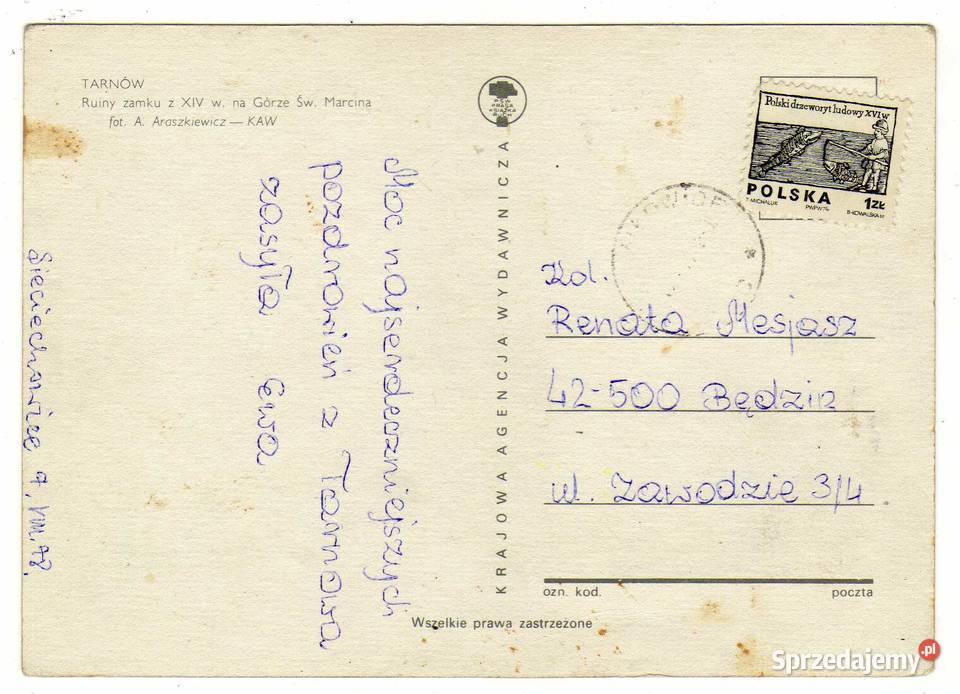 TARNÓW
Ruiny zamku z XIV w. na Górze Św. Marcina
fot. A. Araszkiewicz — KAW
PSW
PRASA
KSIĄŻKA
RUCH
Polski drzeworyt ludowy XVI w
POLSKA 1ZŁ
T. MICHALUK PWPW'74 B-KOWALSKA M
Moc najserdeczniejszych
pozdrowień z Tarnowa
zasyła Ewa
Sieciechowice 7.VIII.78.
KRAJOWA AGENCJA WYDAWNICZA
Kol.
Renata Mesjasz
42-500 Będzin
ul. Zawodzie 3/4
ozn. kod. poczta
Wszelkie prawa zastrzeżone
Sprzedajemy.pl